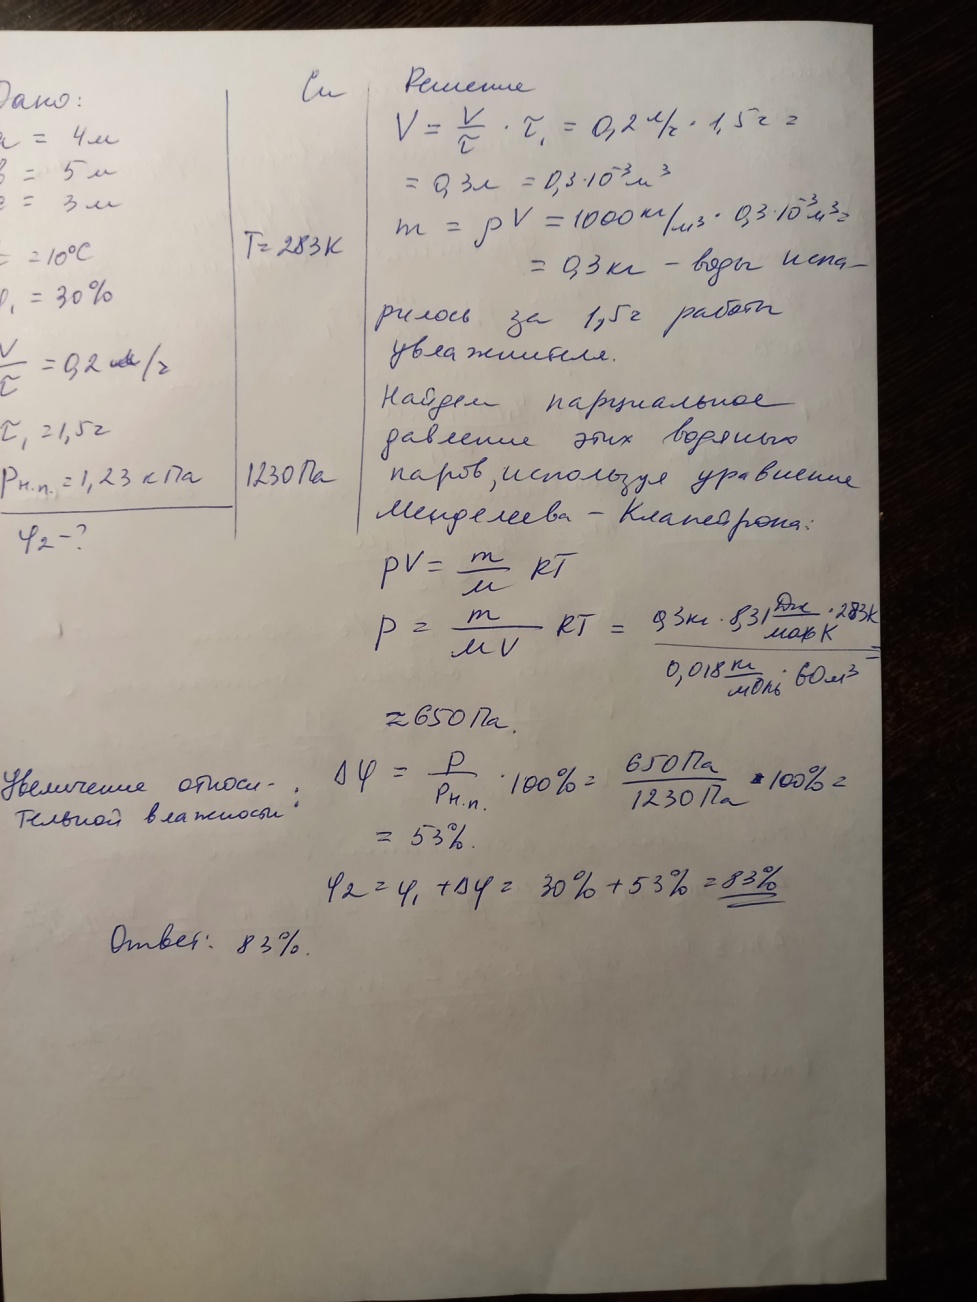 Дано:
а = 4м
в = 5м
с = 3м
t = 10°C
φ₁ = 30%
V/τ = 0,2 л/ч
τ₁ = 1,5ч
Pн.п. = 1,23 кПа
φ₂ - ?
Си
T = 283К
1230 Па
Решение
V = V/τ · τ₁ = 0,2 л/ч · 1,5ч =
= 0,3л = 0,3·10⁻³м³
m = ρV = 1000 кг/м³ · 0,3·10⁻³м³=
= 0,3 кг – воды испа-
рилось за 1,5ч работы
увлажнителя.
Найдем парциальное
давление этих водяных
паров, используя уравнение
Менделеева – Клапейрона:
pV = m/M RT
p = m/MV RT = 0,3кг · 8,31 Дж/моль К · 283К / 0,018 кг/моль · 60м³ =
≈ 650 Па.
Увеличение относи-
тельной влажности:
Δφ = P/Pн.п. · 100% = 650 Па/1230 Па · 100% =
= 53%.
φ₂ = φ₁ + Δφ = 30% + 53% = 83%
Ответ: 83%.